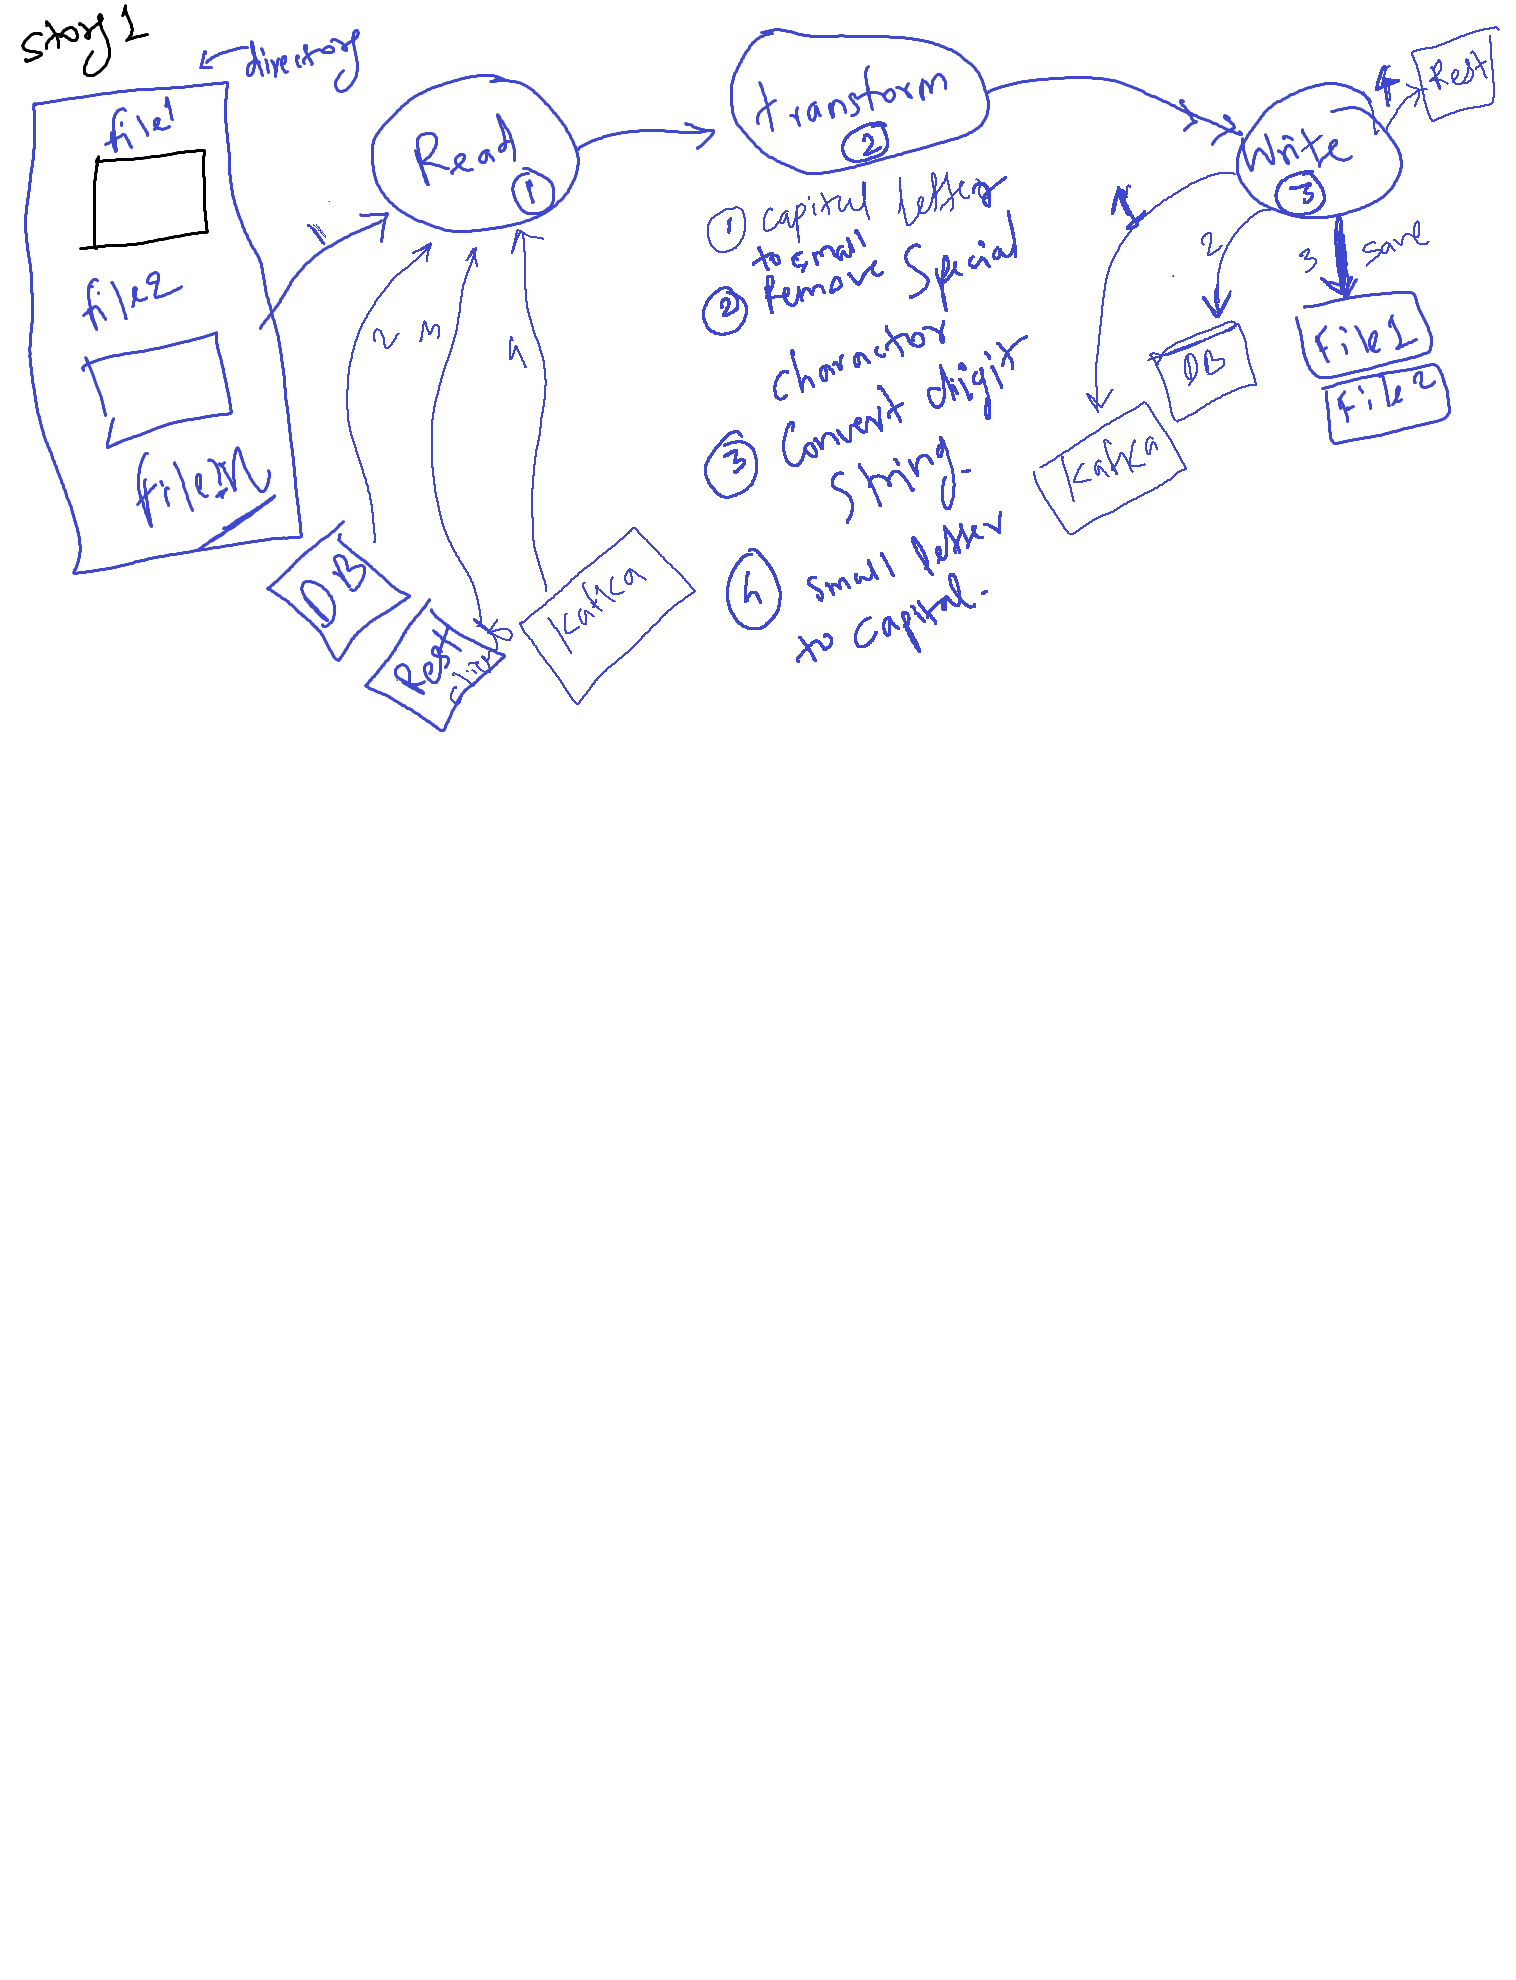 story 1
directory
file1
file2
fileN
1
2
3
4
DB
Rest
client
Kafka
Read
1
transform
2
1 capital letter
to small
2 Remove Special
charactor
3 Convert digit
String.
4 small letter
to capital.
Write
3
1
2
3
save
4
Rest
Kafka
DB
File1
File2